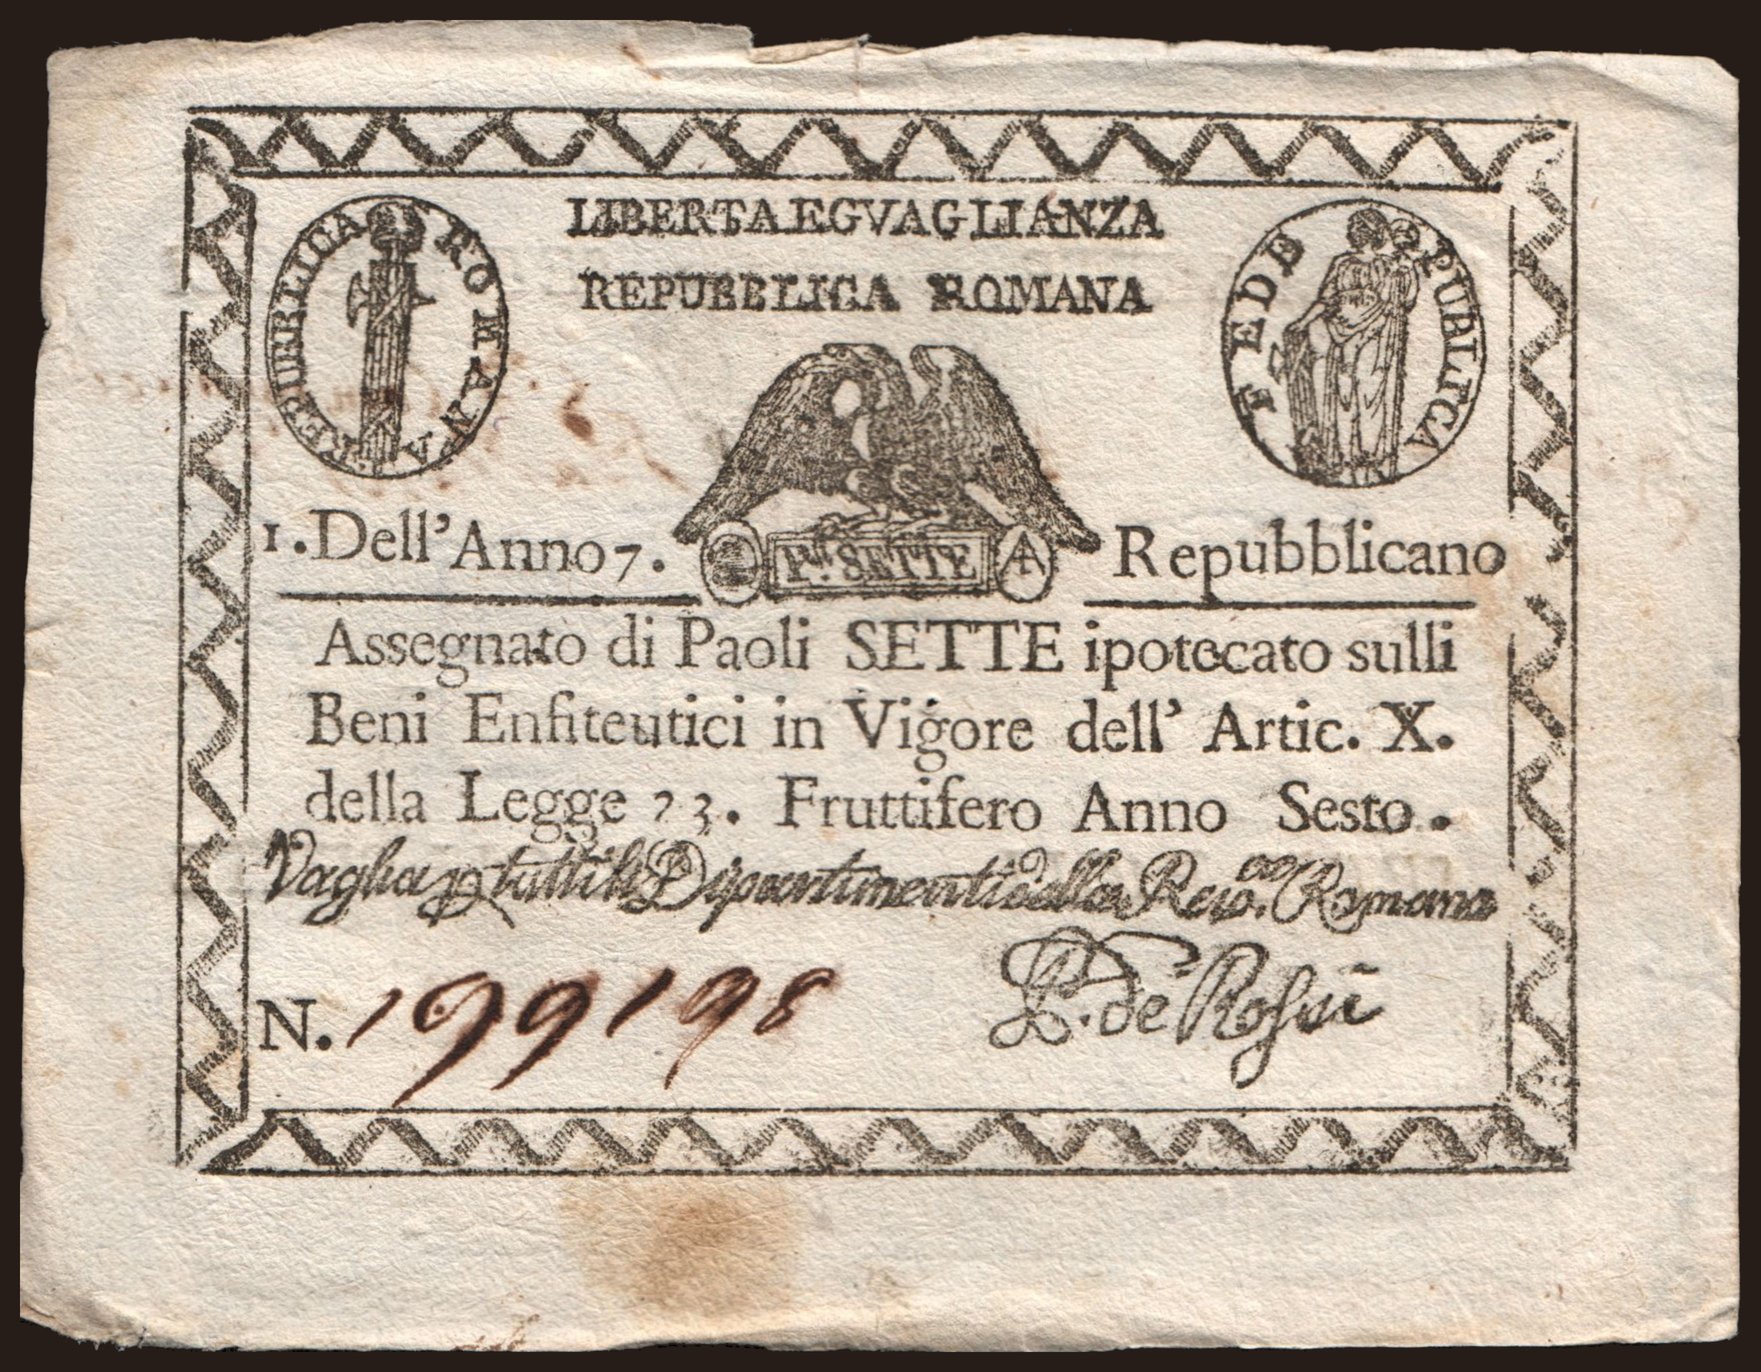 LIBERTA EGVAGLIANZA
REPUBBLICA ROMANA
REPUBBLICA ROMANA
FEDE PUBLICA
1. Dell' Anno 7.
P.li SETTE
Repubblicano
Assegnato di Paoli SETTE ipotecato sulli
Beni Enfiteutici in Vigore dell' Artic. X.
della Legge 23. Fruttifero Anno Sesto.
Vaglia p tutti li Dipartimenti della Rep. Romana
N. 199198
P. de Rossi